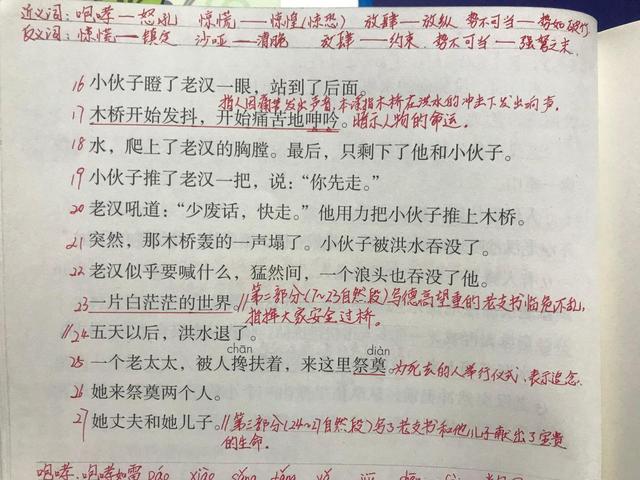 近义词：咆哮——怒吼 惊慌——惊惶(惊恐) 放肆——放纵 势不可当——势如破竹
反义词：惊慌——镇定 沙哑——清脆 放肆——约束 势不可当——强弩之末
16 小伙子瞪了老汉一眼，站到了后面。
指人因痛苦发出声音，本课指木桥在洪水的冲击下发出响声。
17 木桥开始发抖，开始痛苦地呻吟。暗示人物的命运。
18 水，爬上了老汉的胸膛。最后，只剩下了他和小伙子。
19 小伙子推了老汉一把，说：“你先走。”
20 老汉吼道：“少废话，快走。”他用力把小伙子推上木桥。
21 突然，那木桥轰的一声塌了。小伙子被洪水吞没了。
22 老汉似乎要喊什么，猛然间，一个浪头也吞没了他。
23 一片白茫茫的世界。//第二部分(7~23自然段)写德高望重的老支书临危不乱，
指挥大家安全过桥。
//24 五天以后，洪水退了。
chān diàn
25 一个老太太，被人搀扶着，来这里祭奠。为死去的人举行仪式，表示追念。
26 她来祭奠两个人。
27 她丈夫和她儿子。//第三部分(24~27自然段)写了老支书和他儿子献出了宝贵
的生命。
咆哮：咆哮如雷